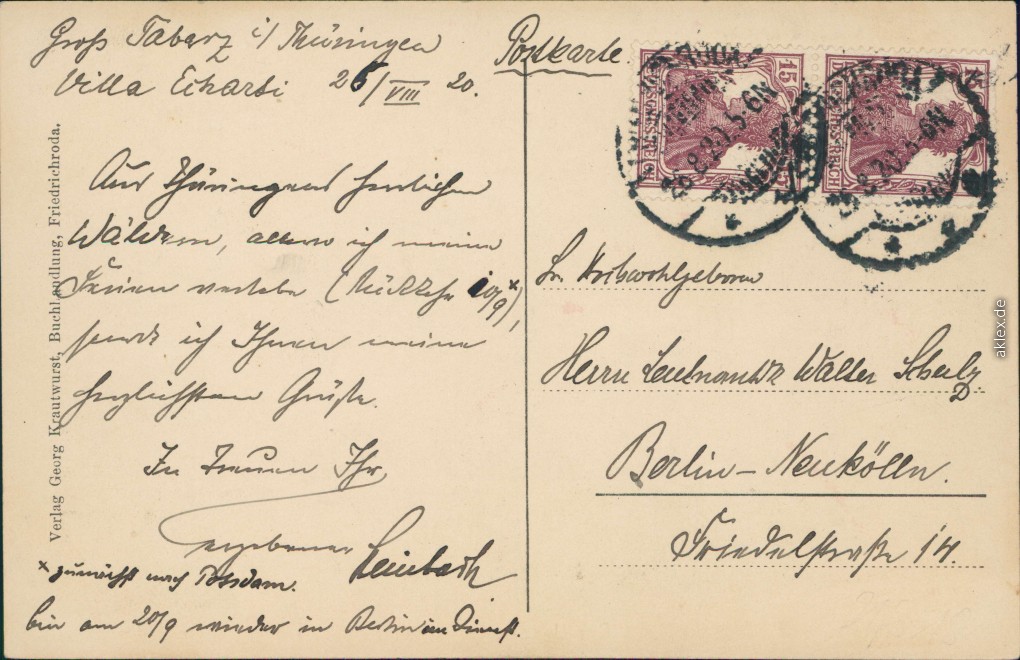 Groß Tabarz i/ Thüringen
Villa 26/VIII 20.
Aus Thüringens herrlichen
Wäldern, allwo ich meine
Ferien verlebe (Rückkehr 10/9 x),
sende ich Ihnen meine
herzlichsten Grüße.
In Treuen Ihr
ergebener
Leimbach
x zunächst nach Potsdam.
bin am 20/9 wieder in Berlin im Dienst.
Verlag Georg Krautwurst, Buchhandlung, Friedrichroda.
Postkarte
15
DEUTSCHES REICH
15
DEUTSCHES REICH
26.8.20. 5-6N
8.20. 5-6N
Sr. Hochwohlgeboren
Herrn Leutnant Walter
Berlin-Neukölln.
Friedelstraße 14.
aklex.de